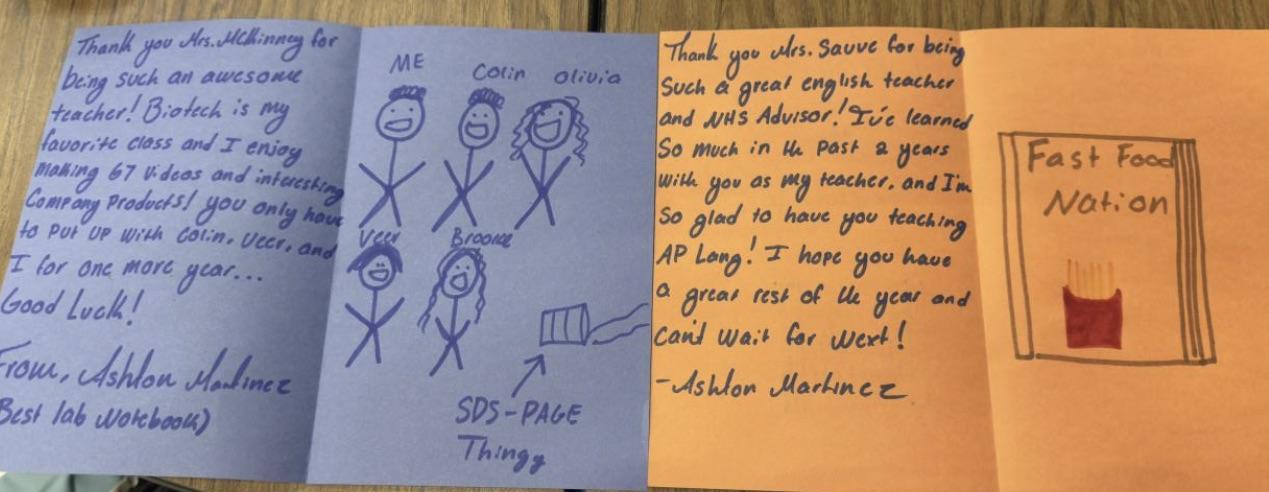 Thank you Mrs. McKinney for
being such an awesome
teacher! Biotech is my
favorite class and I enjoy
making 67 videos and interesting
Company Products! you only have
to put up with Colin, Veer, and
I for one more year...
Good Luck!
From, Ashlon Martinez
(Best lab Notebook)
ME
Colin
Olivia
Veer
Brooke
SDS-PAGE
Thingy
Thank you Mrs. Sauve for being
Such a great english teacher
and NHS Advisor! I've learned
So much in the past 2 years
with you as my teacher, and I'm
So glad to have you teaching
AP Lang! I hope you have
a great rest of the year and
can't wait for Next!
-Ashlon Martinez
Fast Food
Nation